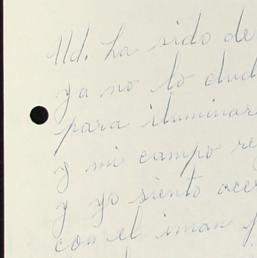 Ud. ha sido de
ya no lo dud
para iluminar
y mi campo re
y yo siento acer
con el iman